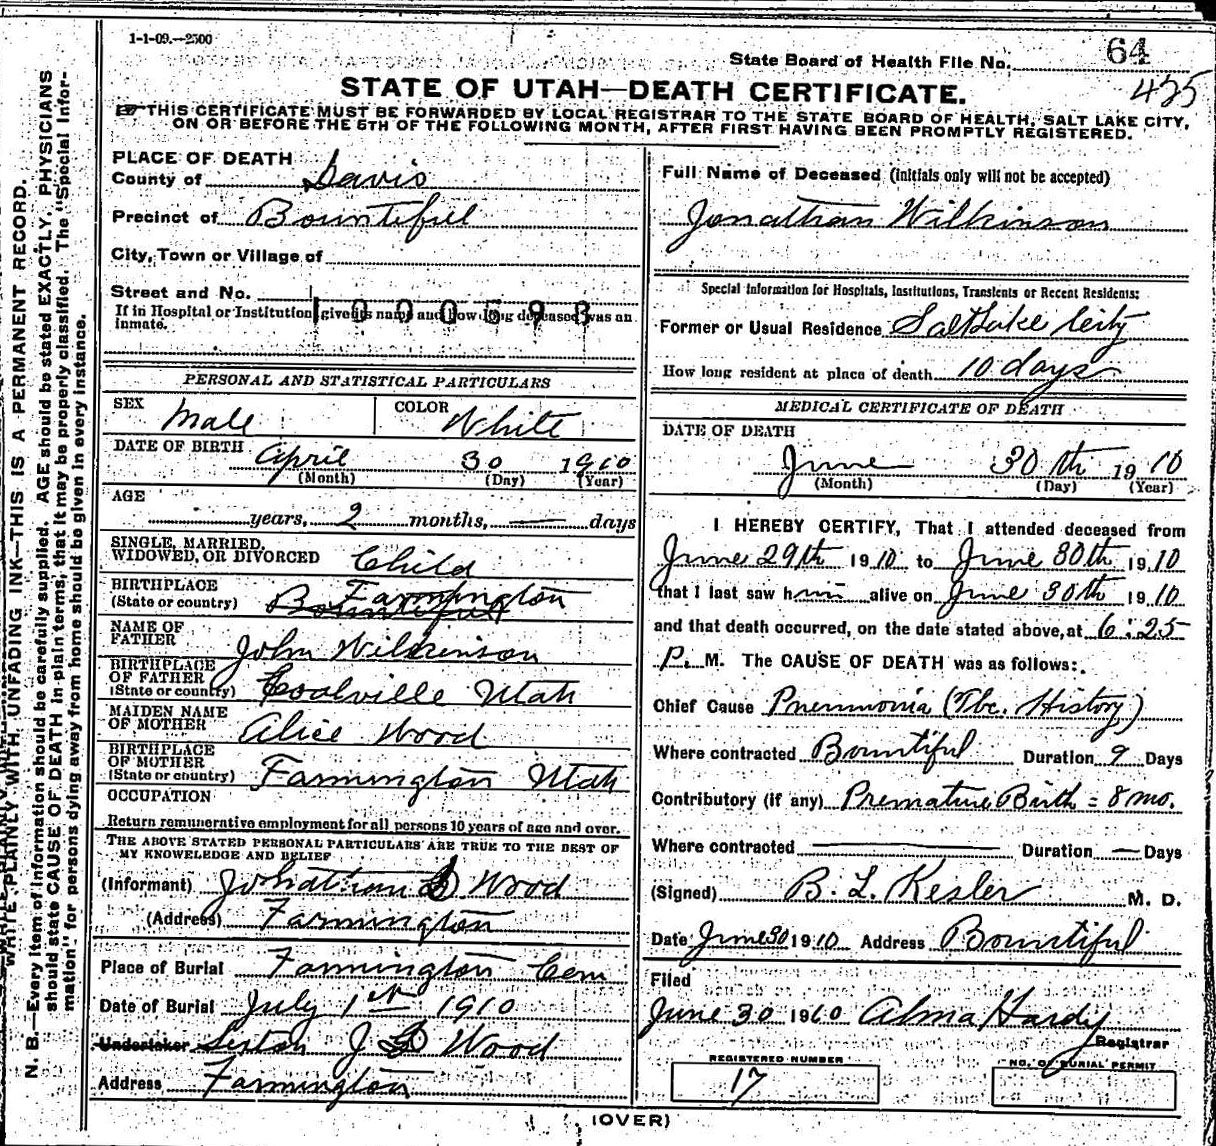 1-1-09.—2500
State Board of Health File No. 64
425
STATE OF UTAH—DEATH CERTIFICATE.
THIS CERTIFICATE MUST BE FORWARDED BY LOCAL REGISTRAR TO THE STATE BOARD OF HEALTH, SALT LAKE CITY,
ON OR BEFORE THE 5TH OF THE FOLLOWING MONTH, AFTER FIRST HAVING BEEN PROMPTLY REGISTERED.
N. B.—Every item of information should be carefully supplied. AGE should be stated EXACTLY. PHYSICIANS
should state CAUSE OF DEATH in plain terms, that it may be properly classified. The "Special Infor-
mation" for persons dying away from home should be given in every instance.
WRITE PLAINLY WITH UNFADING INK—THIS IS A PERMANENT RECORD.
PLACE OF DEATH
County of Davis
Precinct of Bountiful
City, Town or Village of
Street and No.
1000593
If in Hospital or Institution give its name and how long deceased was an
inmate.
PERSONAL AND STATISTICAL PARTICULARS
SEX Male COLOR White
DATE OF BIRTH April 30 1910
(Month) (Day) (Year)
AGE
years, 2 months, — days
SINGLE, MARRIED,
WIDOWED, OR DIVORCED Child
BIRTHPLACE Farmington
(State or country) Bountiful
NAME OF
FATHER John Wilkinson
BIRTHPLACE
OF FATHER
(State or country) Coalville Utah
MAIDEN NAME
OF MOTHER Alice Wood
BIRTHPLACE
OF MOTHER
(State or country) Farmington Utah
OCCUPATION
Return remunerative employment for all persons 10 years of age and over.
THE ABOVE STATED PERSONAL PARTICULARS ARE TRUE TO THE BEST OF
MY KNOWLEDGE AND BELIEF
(Informant) Johathan D Wood
(Address) Farmington
Place of Burial Farmington Cem
Date of Burial July 1st 1910
Undertaker Sexton J D Wood
Address Farmington
Full Name of Deceased (initials only will not be accepted)
Jonathan Wilkinson
Special Information for Hospitals, Institutions, Transients or Recent Residents:
Former or Usual Residence Salt Lake City
How long resident at place of death 10 days
MEDICAL CERTIFICATE OF DEATH
DATE OF DEATH
June 30th 1910
(Month) (Day) (Year)
I HEREBY CERTIFY, That I attended deceased from
June 29th 1910 to June 30th 1910
that I last saw him alive on June 30th 1910
and that death occurred, on the date stated above, at 6:25
P. M. The CAUSE OF DEATH was as follows:
Chief Cause Pneumonia (Tbc. History)
Where contracted Bountiful Duration 9 Days
Contributory (if any) Premature Birth = 8 mo.
Where contracted — Duration — Days
(Signed) B. L. Kesler M. D.
Date June 30 1910 Address Bountiful
Filed
June 30 1910 Alma Hardy
Registrar
REGISTERED NUMBER
17
NO. OF BURIAL PERMIT
(OVER)